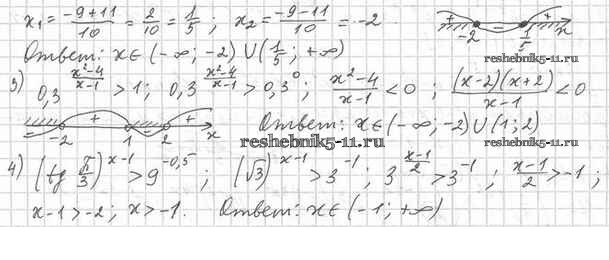 x₁ = (-9+11)/10 = 2/10 = 1/5 ; x₂ = (-9-11)/10 = -2 + -2 - 1/5 + x
Ответ: x ∈ (-∞; -2) ∪ (1/5; +∞)
reshebnik5-11.ru
3) 0,3^((x²-4)/(x-1)) > 1; 0,3^((x²-4)/(x-1)) > 0,3⁰; (x²-4)/(x-1) < 0 ; ((x-2)(x+2))/(x-1) < 0
- -2 + 1 - 2 + x Ответ: x ∈ (-∞; -2) ∪ (1; 2)
reshebnik5-11.ru
reshebnik5-11.ru
4) (tg π/3)^(x-1) > 9^(-0,5) ; (√3)^(x-1) > 3^(-1) ; 3^((x-1)/2) > 3^(-1) ; (x-1)/2 > -1 ;
x-1 > -2; x > -1. Ответ: x ∈ (-1; +∞)